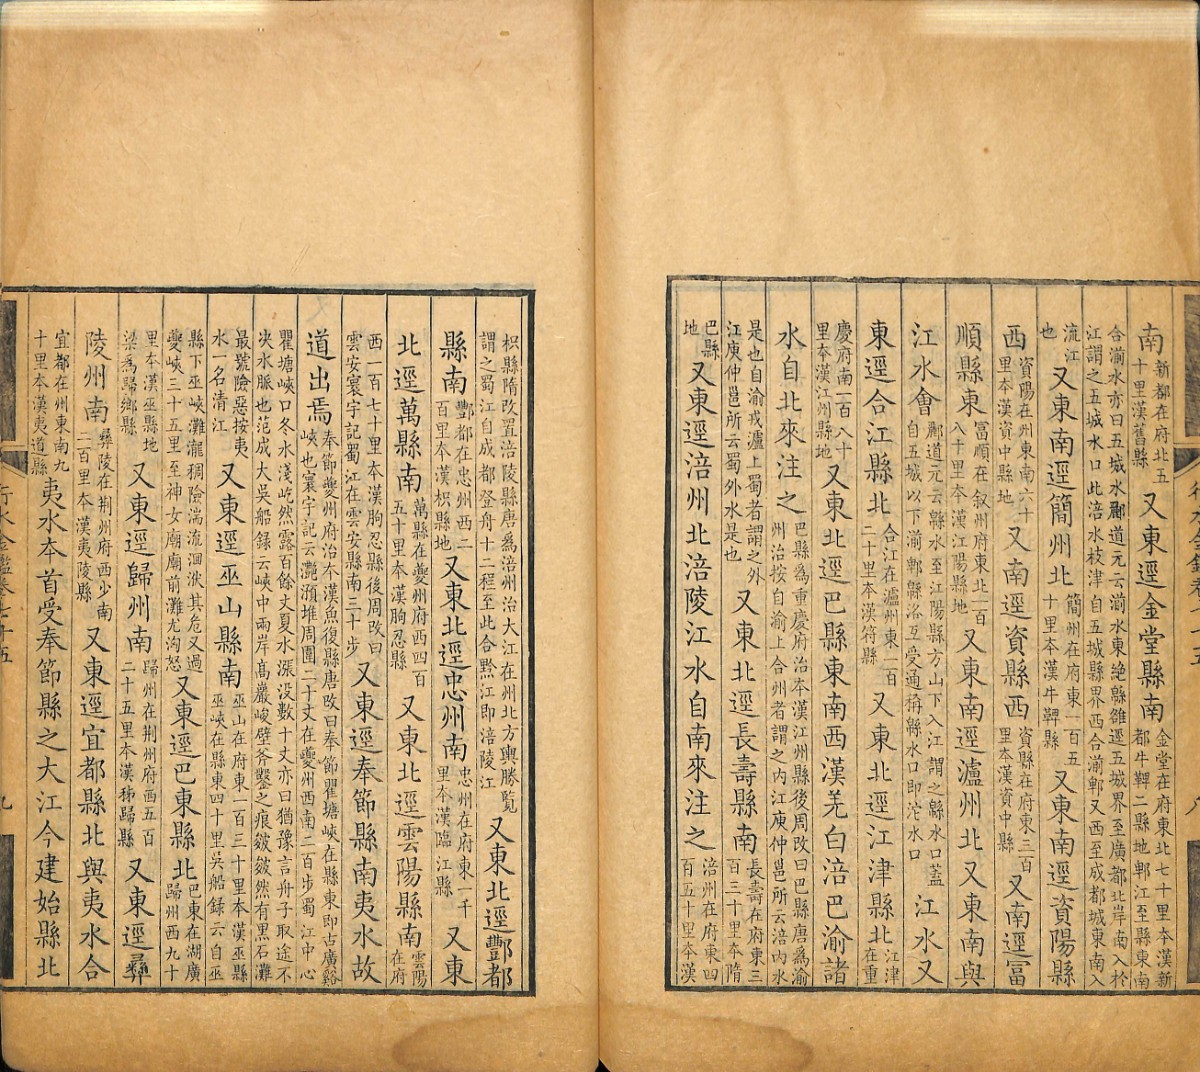 南新都在府北五十里漢舊縣又東逕金堂縣南金堂在府東北七十里本漢新都牛鞞二縣地郫江至縣東南
合湔水亦曰五城水酈道元云湔水東絕緜雒逕五城界至廣都北岸南入於江謂之五城水口此涪水枝津自五城縣界西合湔郫又西至成都城東南入
流江也又東南逕簡州北簡州在府東一百五十里本漢牛鞞縣又東南逕資陽縣
西資陽在州東南六十里本漢資中縣地又南逕資縣西資縣在府東三百里本漢資中縣又南逕富
順縣東富順在叙州府東北一百八十里本漢江陽縣地又東南逕瀘州北又東南與
江水會酈道元云緜水至江陽縣方山下入江謂之緜水口葢自五城以下湔郫緜洛互受通稱緜水口即沱水口江水又
東逕合江縣北合江在瀘州東一百二十里本漢符縣又東北逕江津縣北江津在重
慶府南一百八十里本漢江州縣地又東北逕巴縣東南西漢羌白涪巴渝諸
水自北來注之巴縣為重慶府治本漢江州縣後周改曰巴縣唐為渝州治按自渝上合州者謂之内江庾仲邕所云涪内水
是也自渝戎瀘上蜀者謂之外江庾仲邕所云蜀外水是也又東北逕長壽縣南長壽在府東三百三十里本隋
巴縣地又東逕涪州北涪陵江水自南來注之涪州在府東四百五十里本漢
枳縣隋改置涪陵縣唐為涪州治大江在州北方輿勝覽謂之蜀江自成都登舟十二程至此合黔江即涪陵江又東北逕酆都
縣南酆都在忠州西二百里本漢枳縣地又東北逕忠州南忠州在府東一千里本漢臨江縣又東
北逕萬縣南萬縣在夔州府西四百五十里本漢朐忍縣又東北逕雲陽縣南雲陽在府
西一百七十里本漢朐忍縣後周改曰雲安寰宇記蜀江在雲安縣南三十步又東逕奉節縣南夷水故
道出焉奉節夔州府治本漢魚復縣唐改曰奉節瞿塘峽在縣東即古廣谿峽也寰宇記云灩澦堆周圍二十丈在夔州西南二百步蜀江中心
瞿塘峽口冬水淺屹然露百餘丈夏水漲没數十丈亦曰猶豫言舟子取途不決水脈也范成大吳船録云峽中兩岸髙巖峻壁斧鑿之痕皴皴然有黒石灘
最號險惡按夷水一名清江又東逕巫山縣南巫山在府東一百三十里本漢巫縣巫峽在縣東四十里吳船録云自巫
縣下巫峽灘瀧稠險湍流洄洑其危又過夔峽三十五里至神女廟廟前灘尤洶怒又東逕巴東縣北巴東在湖廣歸州西九十
里本漢巫縣地梁為歸鄉縣又東逕歸州南歸州在荆州府西五百二十五里本漢秭歸縣又東逕彝
陵州南彝陵在荆州府西少南二百里本漢夷陵縣又東逕宜都縣北與夷水合
宜都在州東南九十里本漢夷道縣夷水本首受奉節縣之大江今建始縣北
行水金鑑卷七十五 九